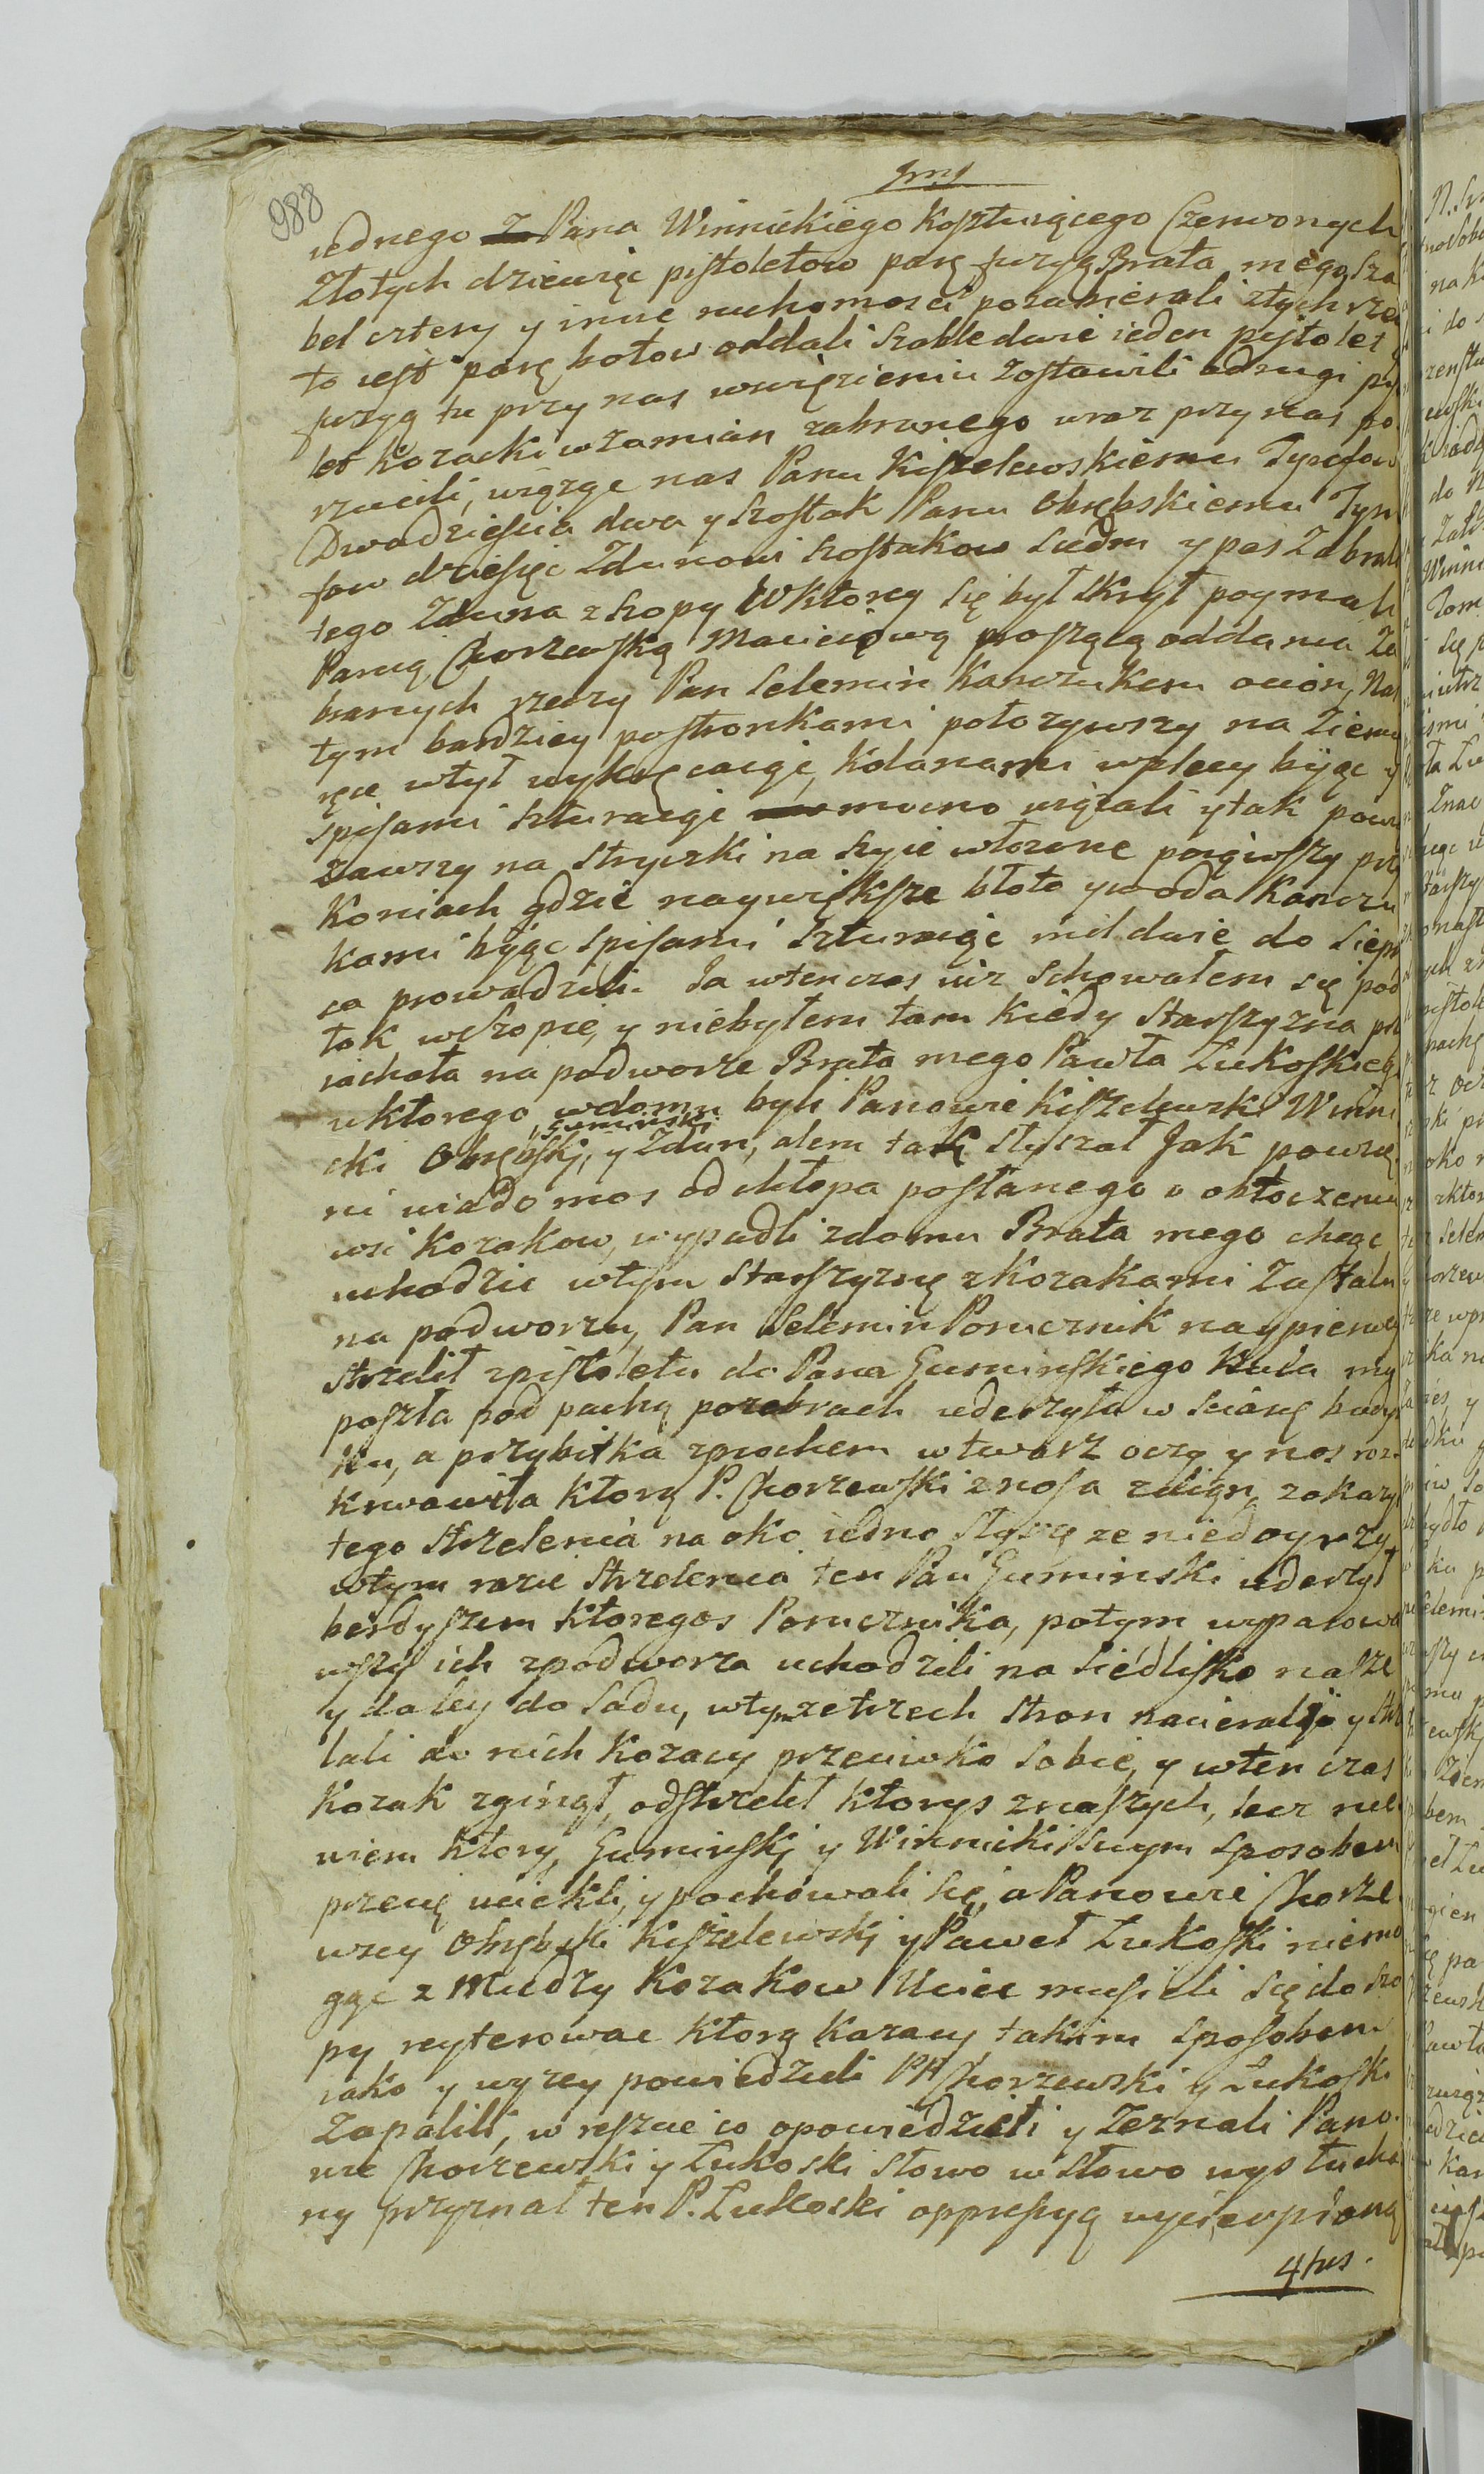 988
3tius
iednego Pana Winnickiego Kosztuiącego Czerwonych
Złotych dziewięc pistoletow parę fuzyą Brata mego, sza
bel cztery y inne ruchomosci pozabierali z tych rze
to iest parę botow oddali szable dwie ieden pistolet y
fuzyą tu przy nas w więzieniu zostawili a drugi pis
let kozacki w zamian zabranego wraz przy nas po
rzucili, wiążąc nas Panu Kiszelewskiemu Tynfow
Dwadziescia dwa y szostak Panu Obrębskiemu Tyn
fow dziesięc Zdunowi szostakow siedm y pas zabrali
tego Zduna z szopy w ktorey się był skrył poymali
Panią Chorzewską Macieiową proszącą oddania Za
branych rzeczy Pan Selemin Kanczukem ociął, Nas
tym bardziey postronkami położywszy na ziemi
ręce w tył wykręcaiąc, Kolanami w plecy biiąc y
spisami szturaiąc mocno wiązali y tak powią
zawszy na stryczki na szyie włożone poiąwszy przy
Koniach gdzie naywiększe błoto y woda Kanczu
kami biiąc spisami szturaiąc mil dwie do Sieprc
ca prowadzili. Ja wtenczas iuż schowałem się pod
tok w szopie, y niebyłem tam kiedy Starszyzna prz
iachała na podworze Brata mego Pawła Łukoskiego
u ktorego w domu byli Panowie Kiszelewski Winni
cki Obrębski, Guminski y Zdun, alem tak słyszał Jak powzię
ni wiadomos od chłopa posłanego o obtoczeniu
wsi Kozakow, wypadli z domu Brata mego chcąc
uchodzic w tym Starszyznę z Kozakami Zastali
na podworzu, Pan Selemin Porucznik naypierwey
strzelił z pistoletu do Pana Guminskiego Kula mu
poszła pod pachę po zebrach uderzyła w scianę budyn
ku, a przybitka z prochem w twarz oczy y nos roz
krwawiła ktorą P. Chorzewski z nosa zdiął, z okazyi
tego strzelenia na oko iedno słyszę ze niedoyrzy,
w tym razie strzelenia ten Pan Guminski uderzył
berdyszem ktoregos Porucznika, potym wyparowa
wszy ich z podworza uchodzili na siedlisko nasze
y daley do sadu, w tym ze trzech stron nacierali y strze
lali do nich Kozacy przeciwko sobie, y wten czas
Kozak zginął, odstrzelił ktorys z naszych, lecz nie
wiem ktory, Guminski y Winnicki swym sposobem
przecię uciekli, y pochowali się, a Panowie Chorze
wscy Obrębski Kiszelewski y Paweł Łukoski niemo
gąc z Miedzy Kozakow Uciec musieli się do szo
py reyterowac ktorą Kozacy takim sposobem
iako y wyzey powiedzieli PP Chorzewski y Łukoski
Zapalili, w reszcie co opowiedzieli y Zeznali Pano
wie Chorzewski y Łukoski słowo w słowo wysłucha
ny przyznał ten P. Łukoski oppresyą wycierpianą
4tus.